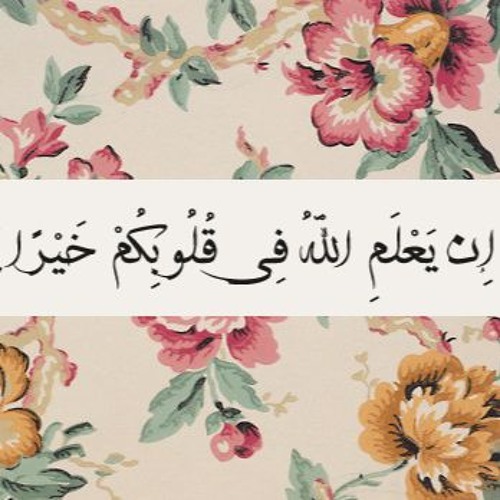 إِن يَعْلَمِ اللَّهُ فِى قُلُوبِكُمْ خَيْرًا